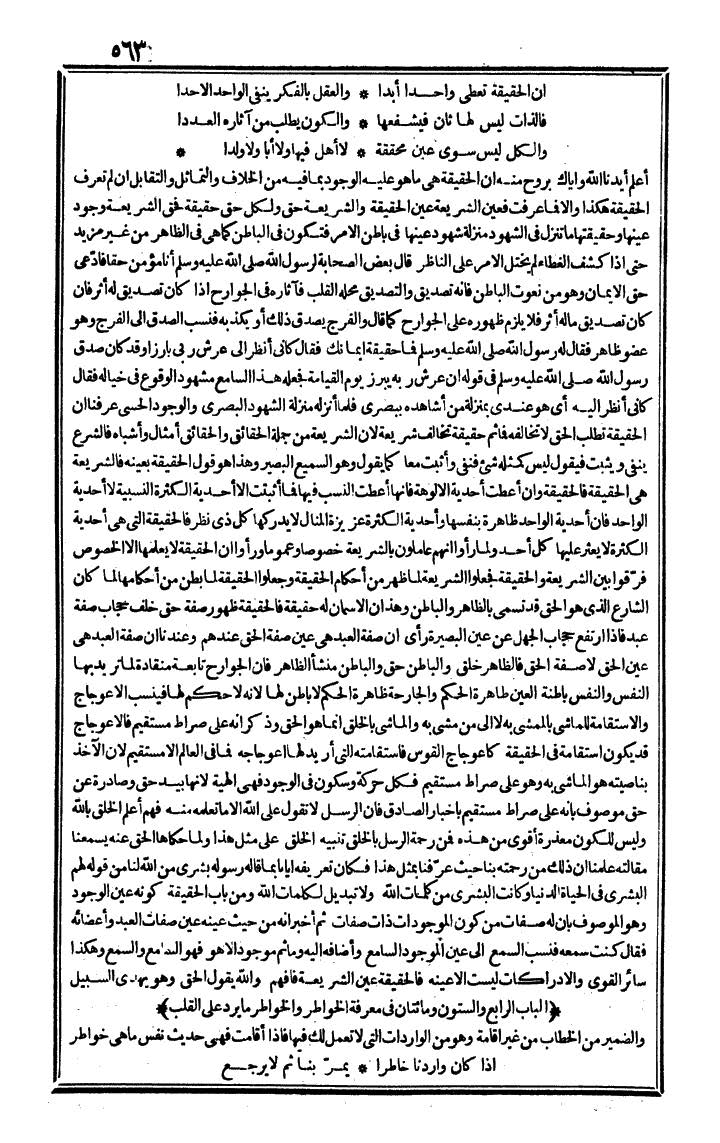 ٥٦٣
ان الحقيقة تعطى واحدا أبدا * والعقل بالفكر ينفى الواحد الاحدا
فالذات ليس لها ثان فيشفعها * والكون يطلب من آثاره العددا
والكل ليس سوى عين محققة * لا أهل فيها ولا أبا ولا ولدا *
أعلم أيدنا الله واياك بروح منه ان الحقيقة هى ما هو عليه الوجود بما فيه من الخلاف والتماثل والتقابل ان لم تعرف
الحقيقة هكذا والا فما عرفت فعين الشريعة عين الحقيقة والشريعة حق ولكل حق حقيقة فحق الشريعة وجود
عينها وحقيقتها ما تنزل فى الشهود منزلة شهود عينها فى باطن الامر فتكون فى الباطن كما هى فى الظاهر من غير مزيد
حتى اذا كشف الغطاء لم يختل الامر على الناظر قال بعض الصحابة لرسول الله صلى الله عليه وسلم أنا مؤمن حقا فادّعى
حق الايمان وهو من نعوت الباطن فانه تصديق والتصديق محله القلب فآثاره فى الجوارح اذا كان تصديق له أثر فان
كان تصديق ماله أثر فلا يلزم ظهوره على الجوارح كما قال والفرج يصدق ذلك أو يكذبه فنسب الصدق الى الفرج وهو
عضو ظاهر فقال له رسول الله صلى الله عليه وسلم فما حقيقة ايمانك فقال كأنى أنظر الى عرش ربى بارزا وقد كان صدق
رسول الله صلى الله عليه وسلم فى قوله ان عرش ربه يبرز يوم القيامة فجعله هذا السامع مشهود الوقوع فى خياله فقال
كأنى أنظر اليه أى هو عندى بمنزلة من أشاهده ببصرى فلما أنزله منزلة الشهود البصرى والوجود الحسى عرفنا ان
الحقيقة تطلب الحق لا تخالفه فما ثم حقيقة تخالف شريعة لان الشريعة من جملة الحقائق والحقائق أمثال وأشباه فالشرع
ينفى ويثبت فيقول ليس كمثله شئ فنفى وأثبت معا كما يقول وهو السميع البصير وهذا هو قول الحقيقة بعينه فالشريعة
هى الحقيقة فالحقيقة وان أعطت أحدية الالوهة فانها أعطت النسب فيها فما أثبتت الا أحدية الكثرة النسبية لا أحدية
الواحد فان أحدية الواحد ظاهرة بنفسها وأحدية الكثرة عزيزة المنال لا يدركها كل ذى نظر فالحقيقة التى هى أحدية
الكثرة لا يعثر عليها كل أحد ولما رأوا انهم عاملون بالشريعة خصوصا وعموما ورأوا ان الحقيقة لا يعلمها الا الخصوص
فرّقوا بين الشريعة والحقيقة فجعلوا الشريعة لما ظهر من أحكام الحقيقة وجعلوا الحقيقة لما بطن من أحكامها لما كان
الشارع الذى هو الحق قد تسمى بالظاهر والباطن وهذان الاسمان له حقيقة فالحقيقة ظهور صفة حق خلف حجاب صفة
عبد فاذا ارتفع حجاب الجهل عن عين البصيرة رأى ان صفة العبد هى عين صفة الحق عندهم وعندنا ان صفة العبد هى
عين الحق لا صفة الحق فالظاهر خلق والباطن حق والباطن منشأ الظاهر فان الجوارح تابعة منقادة لما تريد بها
النفس والنفس باطنة العين ظاهرة الحكم والجارحة ظاهرة الحكم لا باطن لها لانه لا حكم لها فينسب الاعوجاج
والاستقامة للماشى بالممشى به لا الى من مشى به والماشى بالخلق انما هو الحق وذكر انه على صراط مستقيم فالاعوجاج
قد يكون استقامة فى الحقيقة كاعوجاج القوس فاستقامته التى أريد لها اعوجاجه فما فى العالم الا مستقيم لان الآخذ
بناصيته هو الماشى به وهو على صراط مستقيم فكل حركة وسكون فى الوجود فهى الهية لانها بيد حق وصادرة عن
حق موصوف بانه على صراط مستقيم باخبار الصادق فان الرسل لا تقول على الله الا ما تعلمه منه فهم أعلم الخلق بالله
وليس للكون معذرة أقوى من هذه فمن رحمة الرسل بالخلق تنبيه الخلق على مثل هذا ولما حكاها الحق عنه يسمعنا
مقالته علمنا ان ذلك من رحمته بنا حيث عرّفنا بمثل هذا فكان تعريفه ايانا بما قاله رسوله بشرى من الله لنا من قوله لهم
البشرى فى الحياة الدنيا وكانت البشرى من كلمات الله ولا تبديل لكلمات الله ومن باب الحقيقة كونه عين الوجود
وهو الموصوف بان له صفات من كون الموجودات ذات صفات ثم أخبر انه من حيث عينه عين صفات العبد وأعضائه
فقال كنت سمعه فنسب السمع الى عين الموجود السامع وأضافه اليه وما ثم موجود الا هو فهو السامع والسمع وهكذا
سائر القوى والادراكات ليست الا عينه فالحقيقة عين الشريعة فافهم والله يقول الحق وهو يهدى السبيل
﴿الباب الرابع والستون ومائتان فى معرفة الخواطر والخواطر ما يرد على القلب﴾
والضمير من الخطاب من غير اقامة وهو من الواردات التى لا تعمل لك فيها فاذا أقامت فهى حديث نفس ما هى خواطر
اذا كان واردنا خاطرا * يمرّ بنا ثم لا يرجع